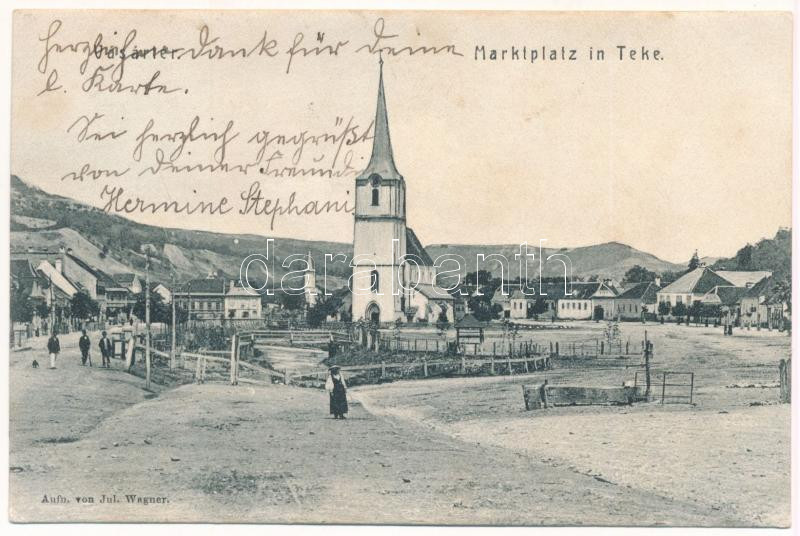 Herzlichen dank für deine
Vásártér.
Marktplatz in Teke.
l. Karte.
Sei herzlich gegrüßt
von deiner Freundin
Hermine Stephani
darabanth
Aufn. von Jul. Wagner.